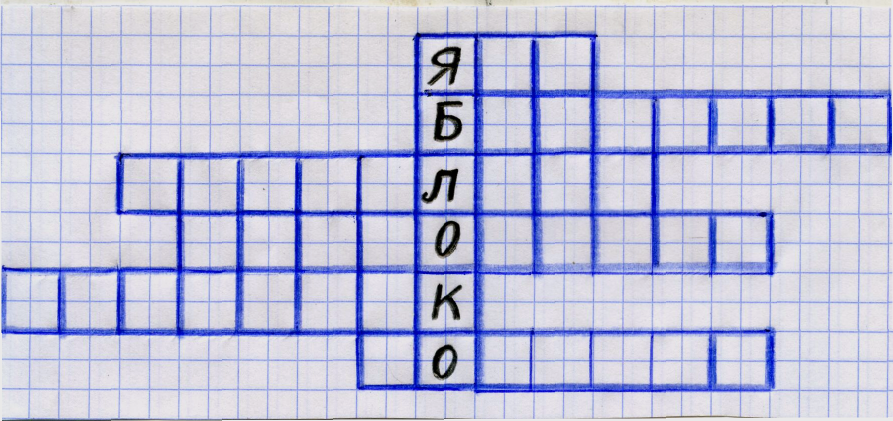 Я
Б
Л
О
К
О